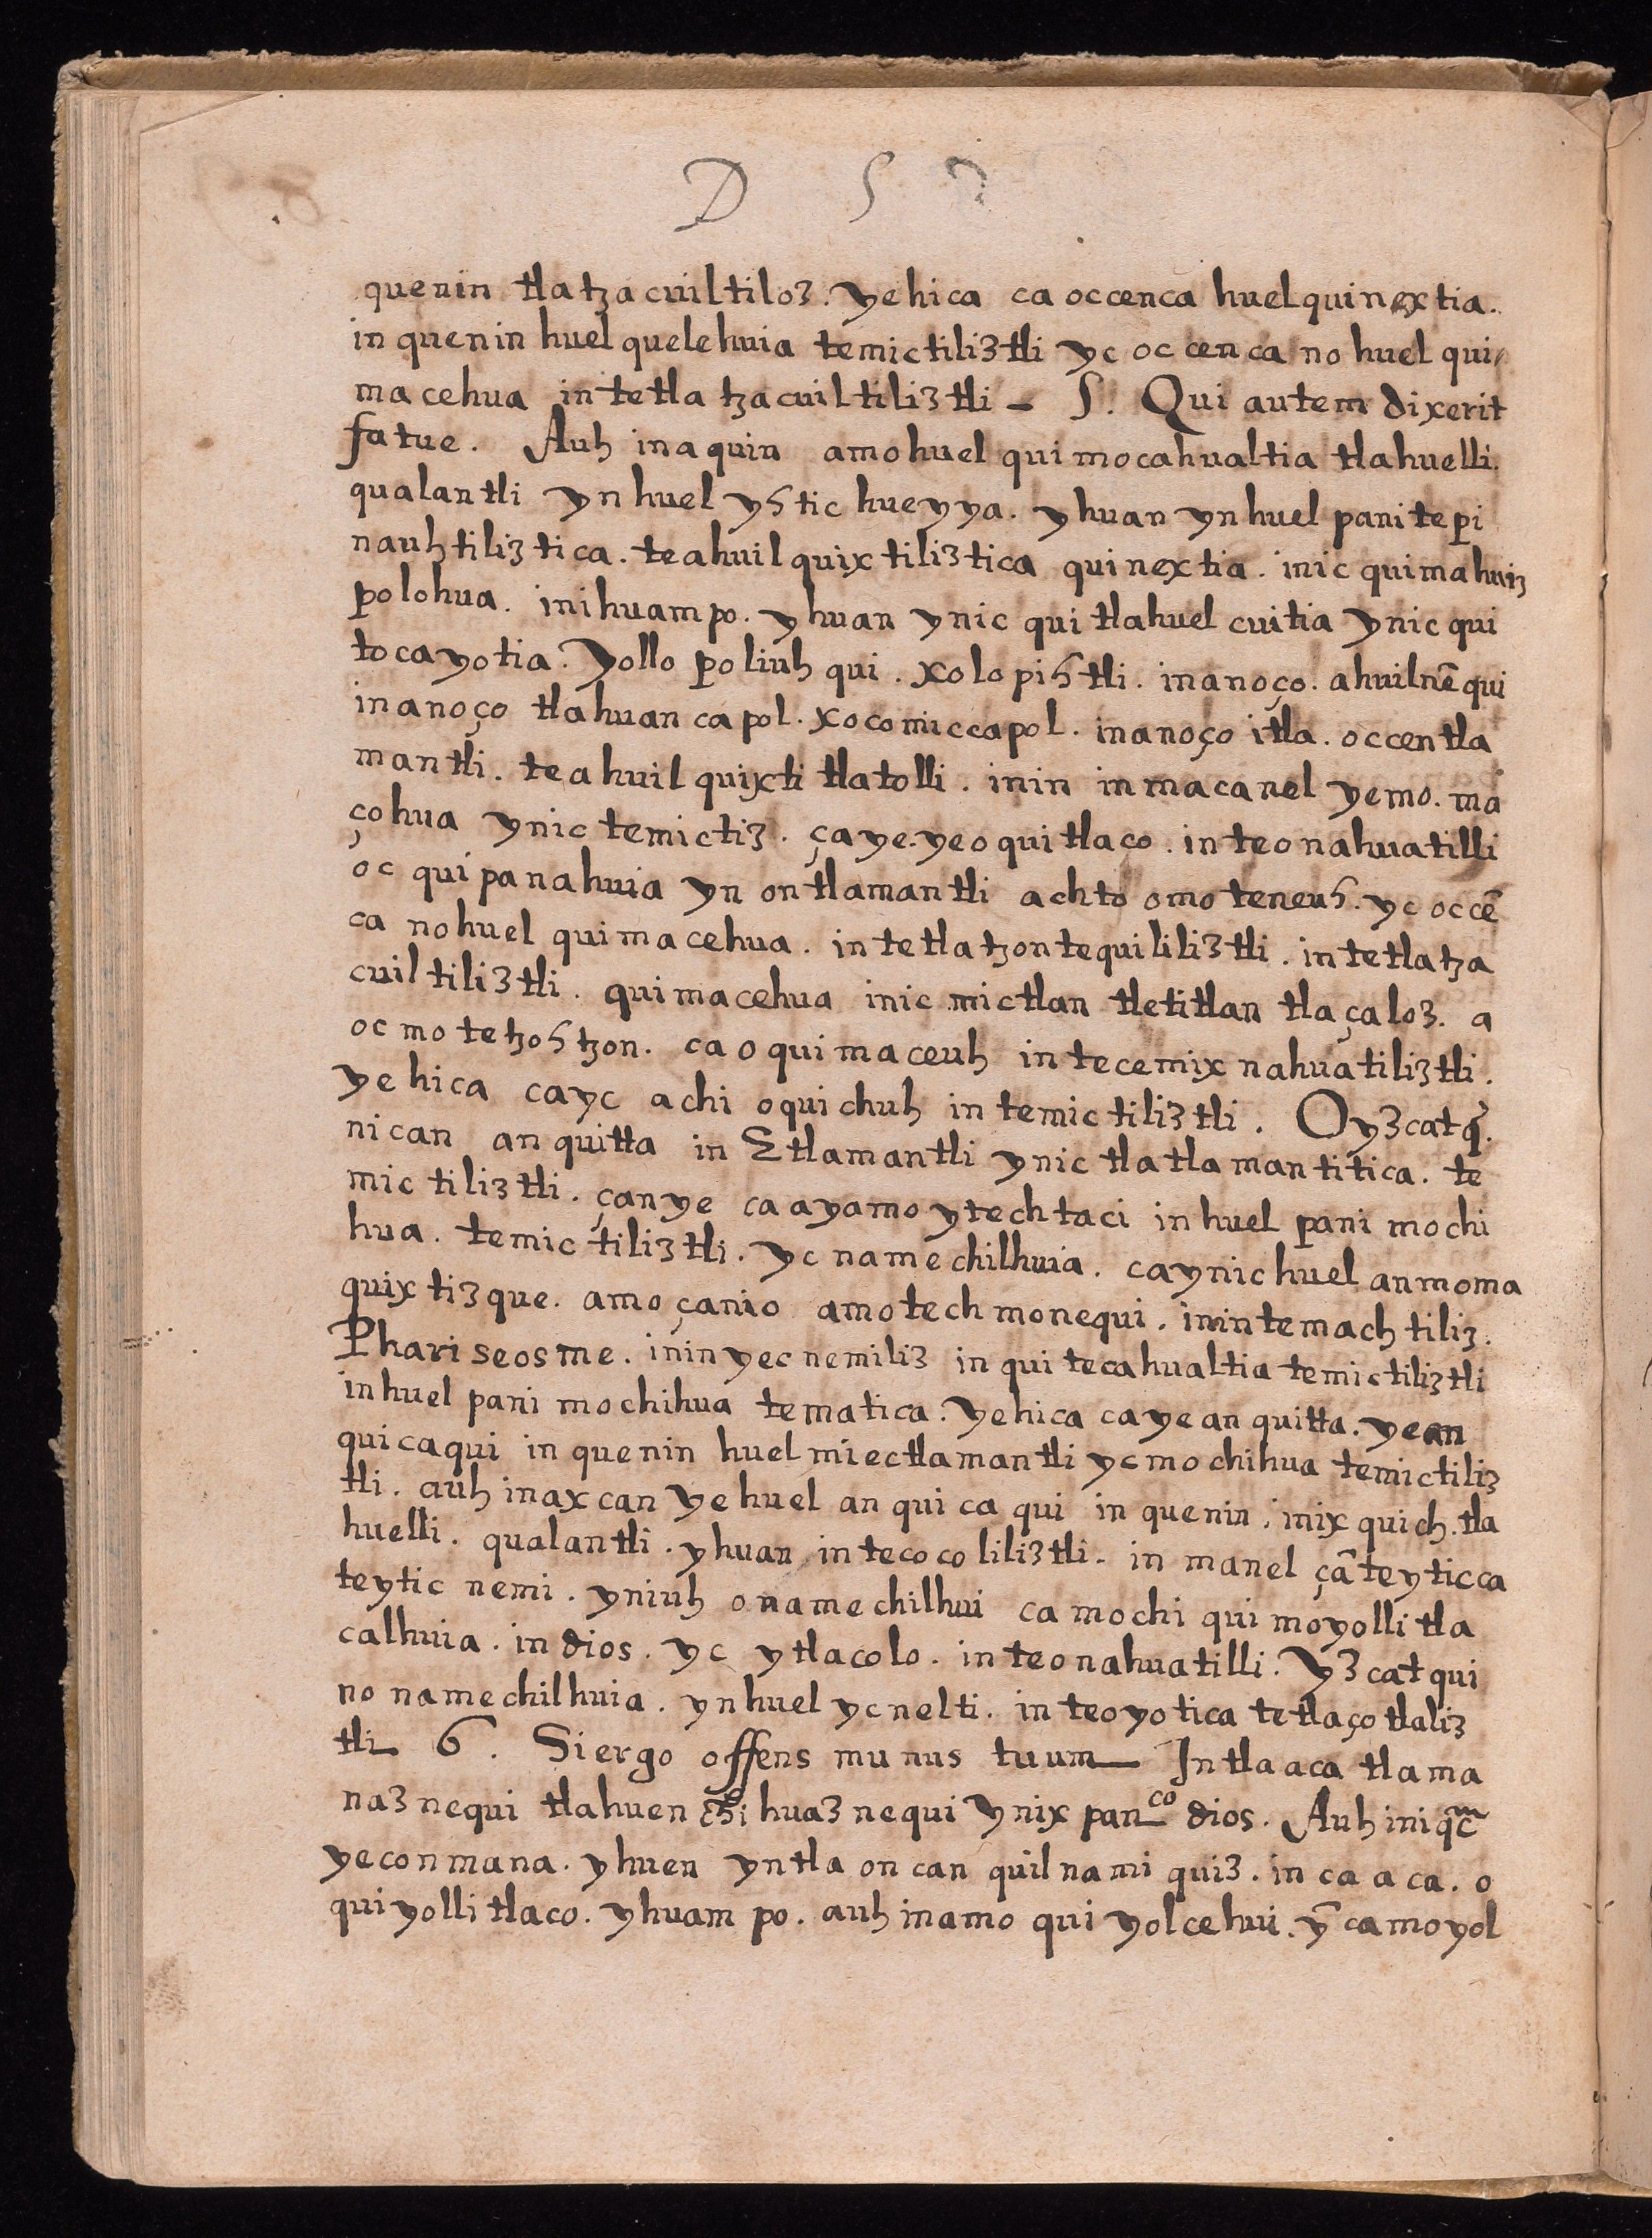 D S
quenin tlatzacuiltiloz. yehica ca occenca huel quinextia.
in quenin huel quelehuia temictiliztli yc occenca no huel qui
macehua in tetlatzacuiltiliztli — S. Qui autem dixerit
fatue. Auh in aquin amo huel quimocahualtia tlahuelli.
qualantli yn huel yhtic hueyya. yhuan yn huel pani tepi
nauhtiliztica. teahuilquixtiliztica quinextia. inic quimahuiz
polohua. inihuampo. yhuan ynic quitlahuelcuitia ynic qui
tocayotia. Yollopoliuhqui. xolopihtli. inanoço. ahuilnēqui
inanoço tlahuancapol. xocomiccapol. inanoço itla. occentla
mantli. teahuilquixti tlatolli. inin in macanel yemo. ma
çohua ynic temictiz. çaye. yeoquitlaço. in teonahuatilli
oc quipanahuia yn ontlamantli achto omoteneuh. yc occē
ca no huel quimacehua. in tetlatzontequililiztli. in tetlatza
cuiltiliztli. quimacehua inic mictlan tletitlan tlaçaloz. a
oc motetzohtzon. ca oquimaceuh in tecemixnahuatiliztli.
yehica cayc achi oquichuh in temictiliztli. O yzcatq̄.
nican anquitta in Σ tlamantli ynic tlatlamantitica. te
mictiliztli. çanye ca ayamo ytech taci in huel pani mochi
hua. temictiliztli. yc namechilhuia. ca ynic huel anmoma
quixtizque. amo çanio amotech monequi. inin temachtiliz.
Phariseosme. inin yecnemiliz in quitecahualtia temictiliztli
in huel pani mochihua tematica. yehica ca ye anquitta. ye an
quicaqui in quenin huel miectlamantli yc mochihua temictiliz
tli. auh in axcan ye huel anquicaqui in quenin. inixquich. tla
huelli. qualantli. yhuan in tecocoliliztli. in manel çā teyticca
teytic nemi. yniuh onamechilhui ca mochi quimoyollitla
calhuia. in dios. yc ytlacolo. in teonahuatilli. Yzcatqui
no namechilhuia. yn huel yc nelti. in teoyotica tetlaçotlaliz
tli 6. Si ergo offens munus tuum — Intla aca tlama
naznequi tlahuenchihuaznequi ynixpanco dios. Auh in iq̄c
yeconmana. yhuen yntla oncan quilnamiquiz. in ca aca. o
quiyollitlaco. yhuampo. auh in amo quiyolcehui. ȳ ca moyol